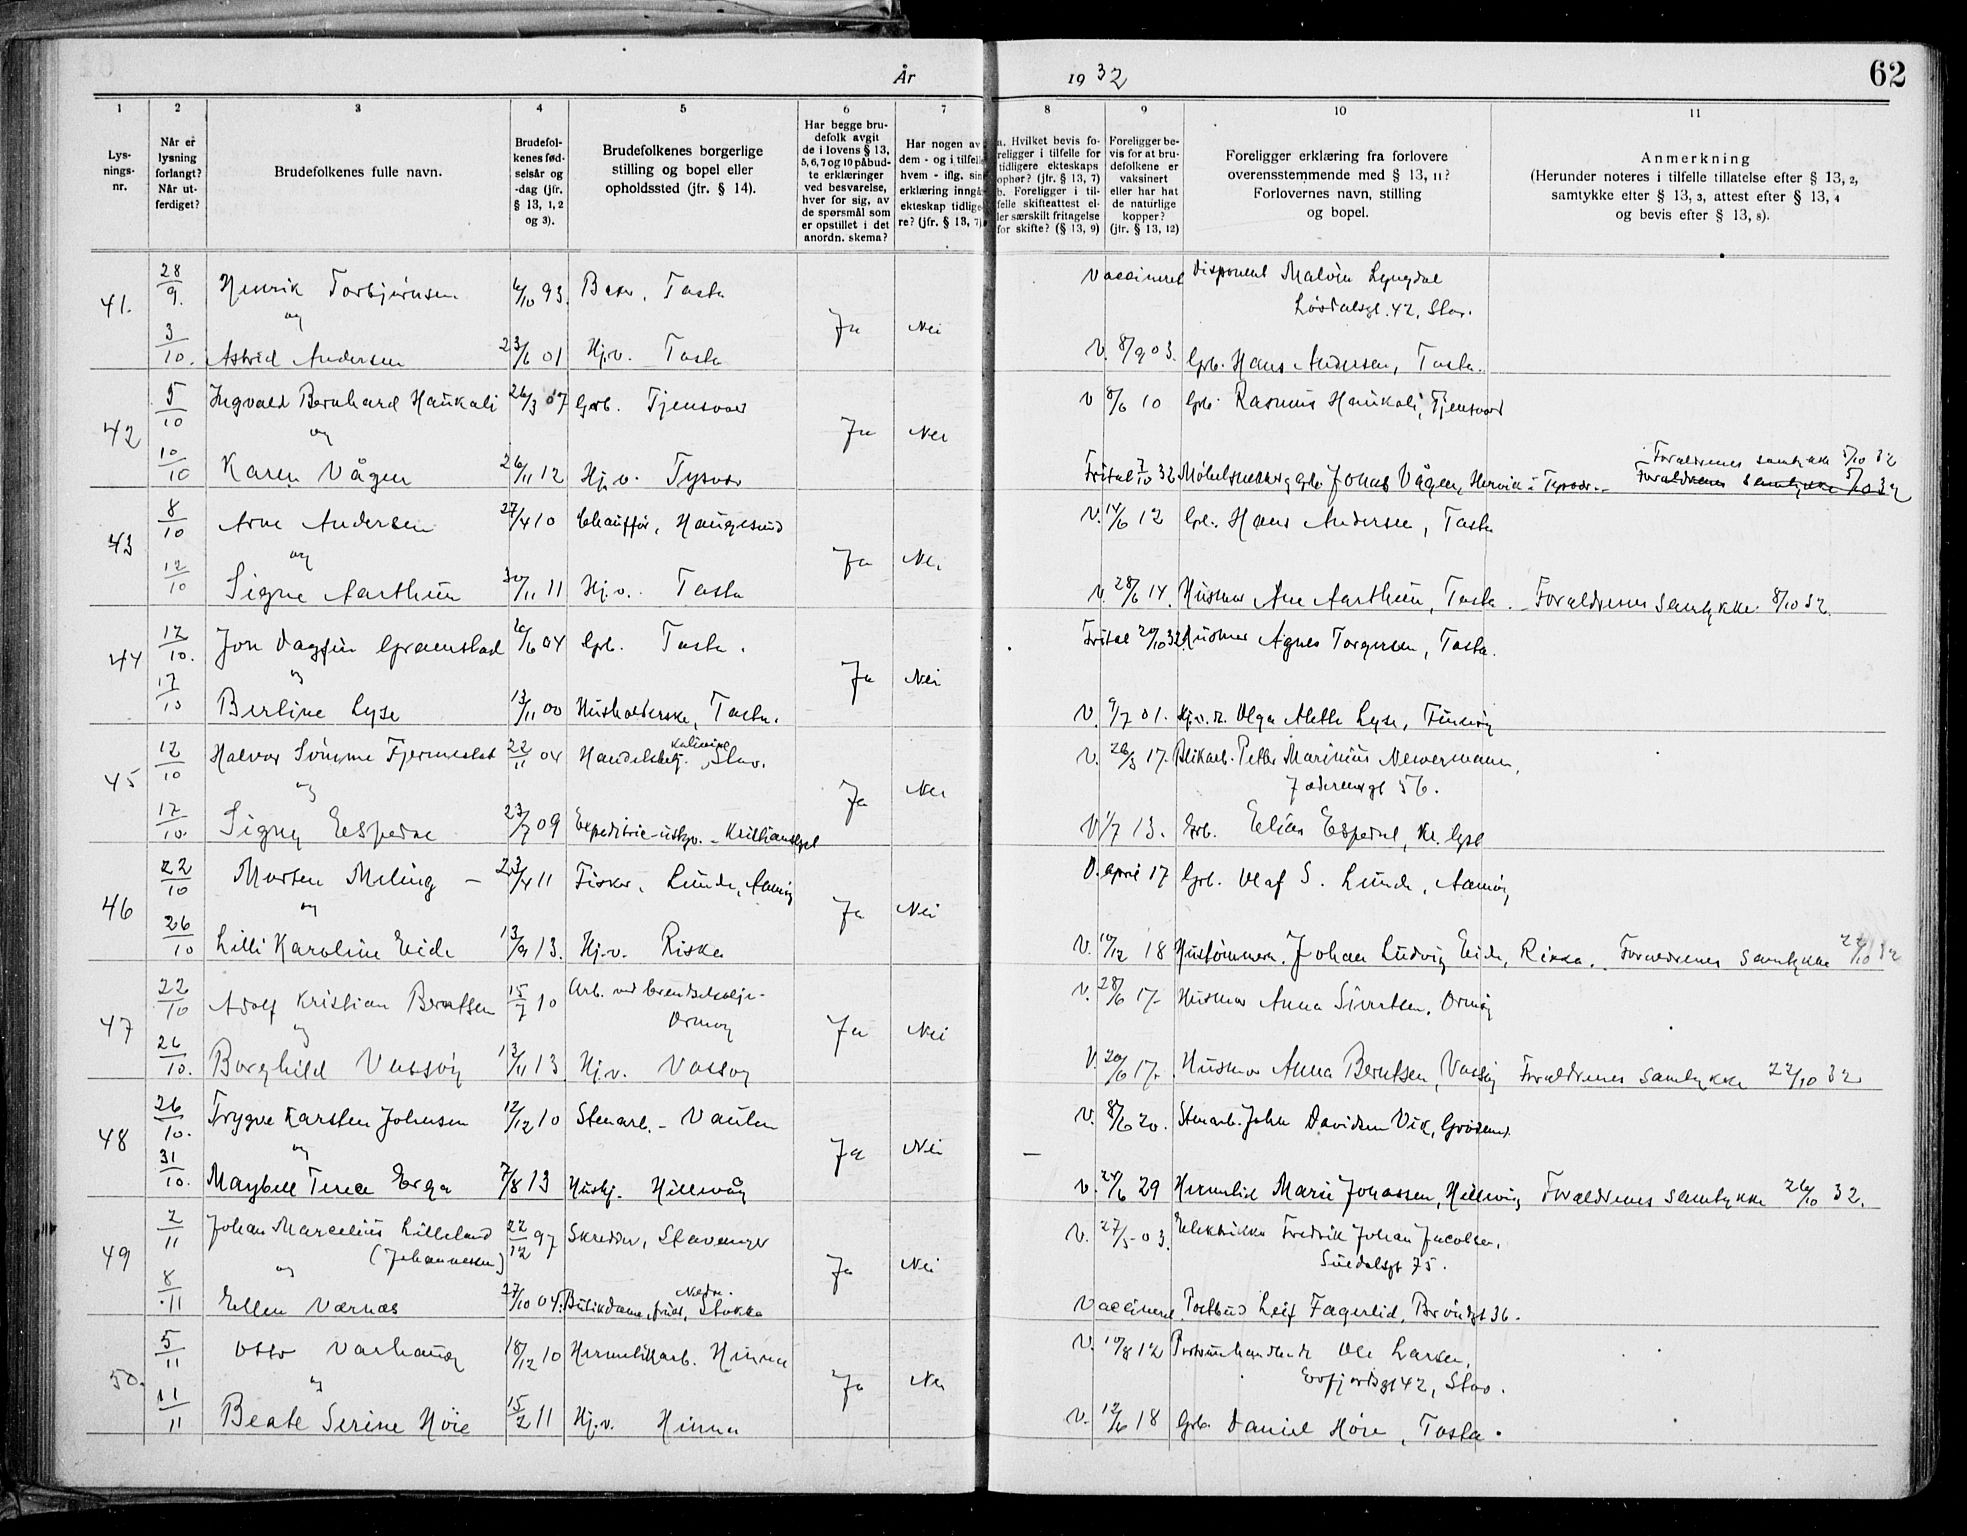 År 1932
62
1 2 3 4 5 6 7 8 9 10 11
Lys-
nings-
nr.
Når er
lysning
forlangt?
Når ut-
ferdiget?
Brudefolkenes fulle navn.
Brudefol-
kenes fød-
selsår og
-dag (jfr.
§ 13, 1, 2
og 3).
Brudefolkenes borgerlige
stilling og bopel eller
opholdssted (jfr. § 14).
Har begge bru-
defolk avgit
de i lovens § 13,
5, 6, 7 og 10 påbud-
te erklæringer
ved besvarelse,
hver for sig, av
de spørsmål som
er opstillet i det
anordn. skema?
Har nogen av
dem - og i tilfelle
hvem - iflg. sin
erklæring inngå-
ekteskap tidlige-
re? (jfr. § 13, 7)
a. Hvilket bevis fo-
religger i tilfelle for
tidligere ekteskaps
ophør? (jfr. § 13, 7)
b. Foreligger i til-
felle skifteattest el-
ler særskilt fritagelse
for skifte? (§ 13, 9)
Foreligger be-
vis for at bru-
defolkene er
vaksinert
eller har hat
de naturlige
kopper?
(jfr. § 13, 12)
Foreligger erklæring fra forlovere
overensstemmende med § 13, 11?
Forlovernes navn, stilling
og bopel.
Anmerkning
(Herunder noteres i tilfelle tillatelse efter § 13, 2,
samtykke efter § 13, 3, attest efter § 13, 4
og bevis efter § 13, 8).
41. 28/9. Henrik Torbjørnsen 6/10 93. Baker, Tasta Vaccineret Disponent Malvin Lyngdal
Løvdalsgt. 42, Stav.
og Ja Nei
3/10. Astrid Andersen 23/6 01 Hj.v. Tasta V. 8/9 03. Grb. Hans Andersen, Tasta.
42 5/10 Ingvald Bernhard Haukali 26/3 07 Grb. Tjensvoll V 8/6 10 Grb. Rasmus Haukali, Tjensvold
og Ja Nei
Foreldrenes samtykke 5/10 32
10/10 Karen Vågen 26/11 12 Hj.v. Tysvær Fritat 7/10 32 Møbelsnekker, grb. Jonas Vågen, Hervik i Tysvær. Foreldrenes samtykke 5/10 32
43 8/10 Arne Andersen 27/4 10 Chauffør, Haugesund V. 14/6 12 Grb. Hans Andersen, Tasta
og Ja Nei
12/10 Signe Aarthun 30/11 11 Hj.v. Tasta V. 28/6 14. Husmor Ane Aarthun, Tasta. Foreldrenes samtykke 8/10 32.
44 12/10. Jon Dagfin Gramstad 6/6 04 Grb. Tasta. Fritat 20/10 32 Husmor Agnes Torgersen, Tasta.
og Ja Nei
17/10 Berline Lyse 13/11 00 Husholderske, Tasta. V. 9/7 01. Hj.v. Olga Alette Lyse, Finnøy
45 12/10 Halvor Sømme Fjermestad 22/11 04 Handelsbetj. Stav. V. 26/3 17. Blikarb. Petter Marinius Newermann,
Jæderensgt 56.
og Ja Nei
17/10. Signy Espedal 23/7 09 Expeditrice V 1/7 13. Grb. Elias Espedal, Kr. lyst
46 22/10 Morten Meling - 23/4 11 Fisker, Lunde, Aamøy V. april 17 Grb. Olaf S. Lunde, Aamøy
og Ja Nei
26/10 Lilli Karoline Eide 13/9 13. Hj.v. Riska V. 10/12 18 Hustømmerm. Johan Ludvig Eide, Riska. Foreldrenes samtykke 22/10 32
47 22/10 Adolf Kristian Berntsen 15/7 10 Arb. ved brendselsolje-
Ormøy V. 28/6 17- Husmor Anna Sivertsen, Ormøy
og Ja Nei
26/10. Borghild Vassøy 13/11 13 Hj.v. Vassøy V. 20/6 17- Husmor Anna Berntsen, Vassøy Foreldrenes samtykke 22/10 32
48 26/10. Trygve Karsten Johnsen 12/12 10 Stenarb. - Vaulen V. 8/6 20. Stenarb. John Davidsen Vik, Grødem.
og Ja Nei
31/10. Maybell Terea Erga 7/8 13 Hushj. Hillevåg V. 24/6 29 Hermetisk Marie Jonassen, Hillevåg Foreldrenes samtykke 26/10 32.
49 2/11 Johan Marcelius Lilleland 22/12 97 Skredder, Stavanger V. 27/5-03. Elektriker Fredrik Johan Jacobsen,
(Johannessen) Suldalsgt 75.
og Ja Nei
Nedre
8/11 Ellen Varnes 27/10 04. Butikdame, Stokka Vaccineret. Postbud Leif Fagerlid, Brøndgt 36.
50. 5/11 Otto Varhaug 18/12 10 Hermetikkarb. Hinna V. 10/8 12 Ole Larsen,
Erfjordsgt 42, Stav.
og Ja Nei
11/11 Beate Serine Høie 15/2 11 Hj.v. Hinna V. 12/6 18 Grb. Daniel Høie, Tasta.